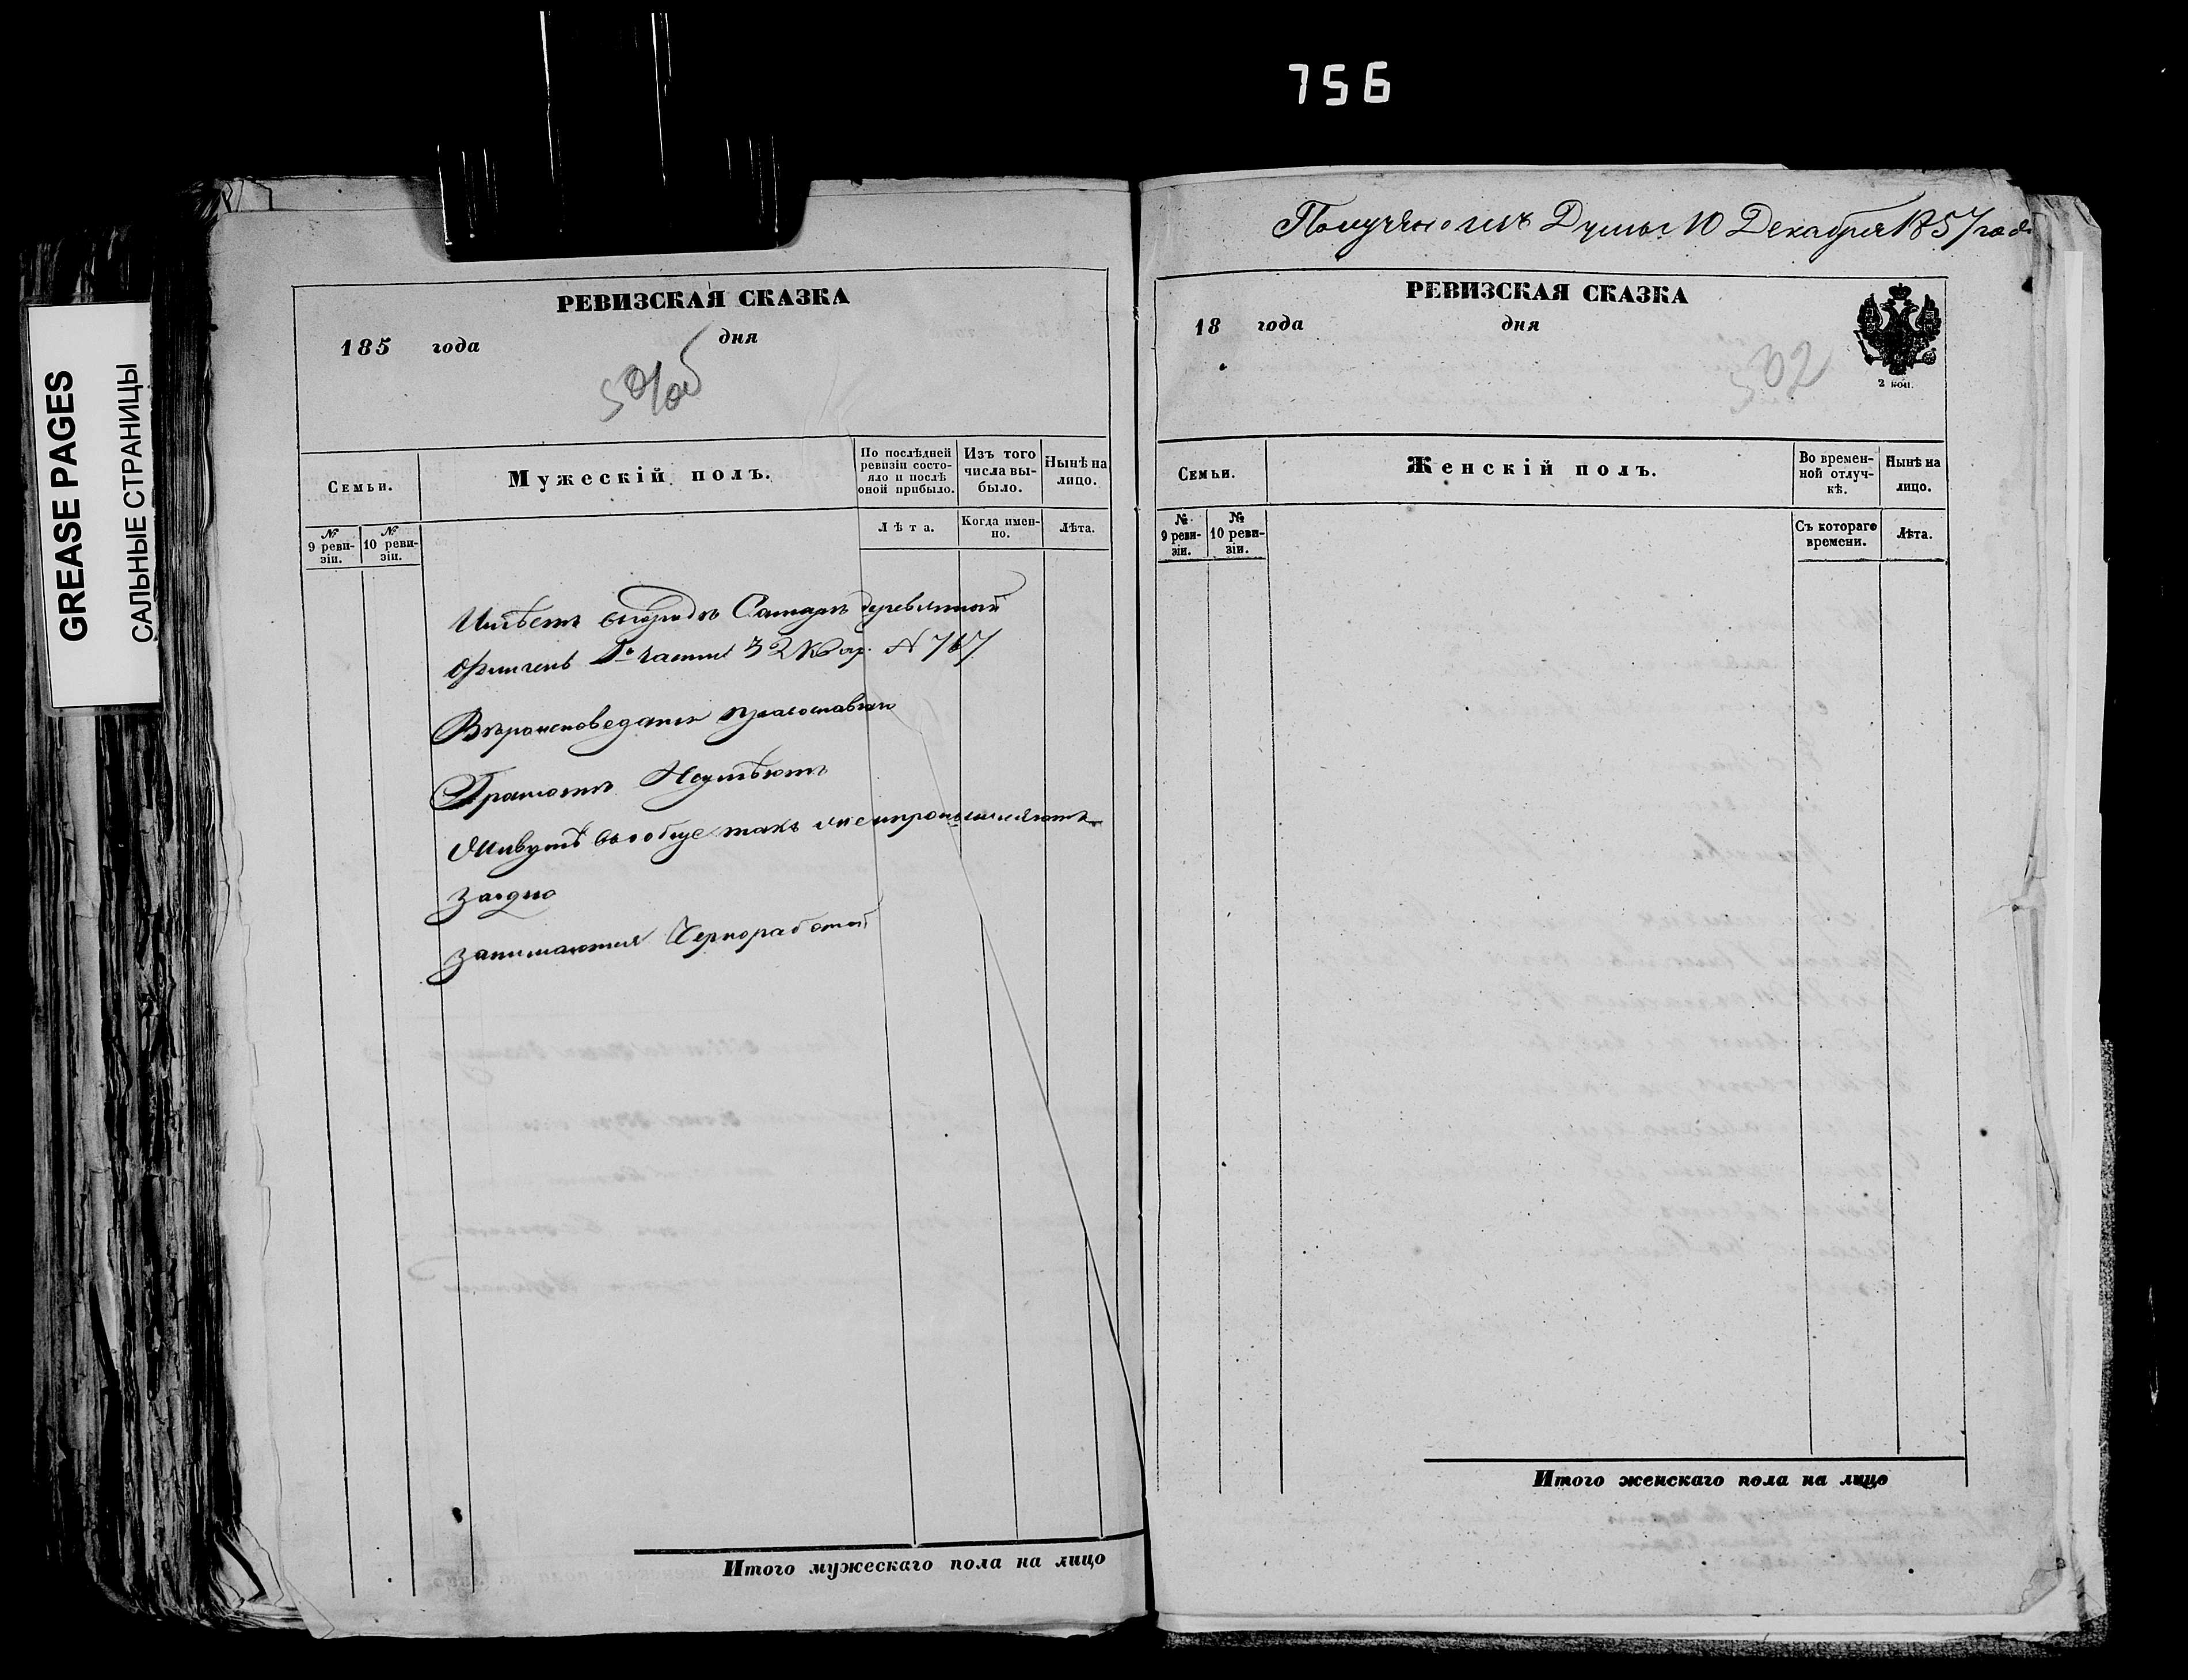 756
GREASE PAGES
САЛЬНЫЕ СТРАНИЦЫ
РЕВИЗСКАЯ СКАЗКА
185 года дня
501 об
Семьи.
Мужескій полъ.
По послѣдней ревизіи состо-
яло и послѣ
оной прибыло.
Изъ того
числа вы-
было.
Нынѣ на
лицо.
№ 9 реви-
зіи.
№ 10 реви-
зіи.
Лѣта.
Когда имен-
но.
Лѣта.
Имѣетъ въ городѣ Самарѣ деревянной
флигель части 32 Квар. № 767
Вѣроисповеданія православнаго
Грамотѣ Неумѣютъ
Живутъ вообще такъ и
заодно
занимаются Черноработой
Итого мужескаго пола на лицо
Получено изъ Думы 10 Декабря 1857 года
РЕВИЗСКАЯ СКАЗКА
18 года дня
2 коп.
502
Семьи.
Женскій полъ.
Во времен-
ной отлуч-
кѣ.
Нынѣ на
лицо.
№ 9 реви-
зіи.
№ 10 реви-
зіи.
Съ котораго
времени.
Лѣта.
Итого женскаго пола на лицо